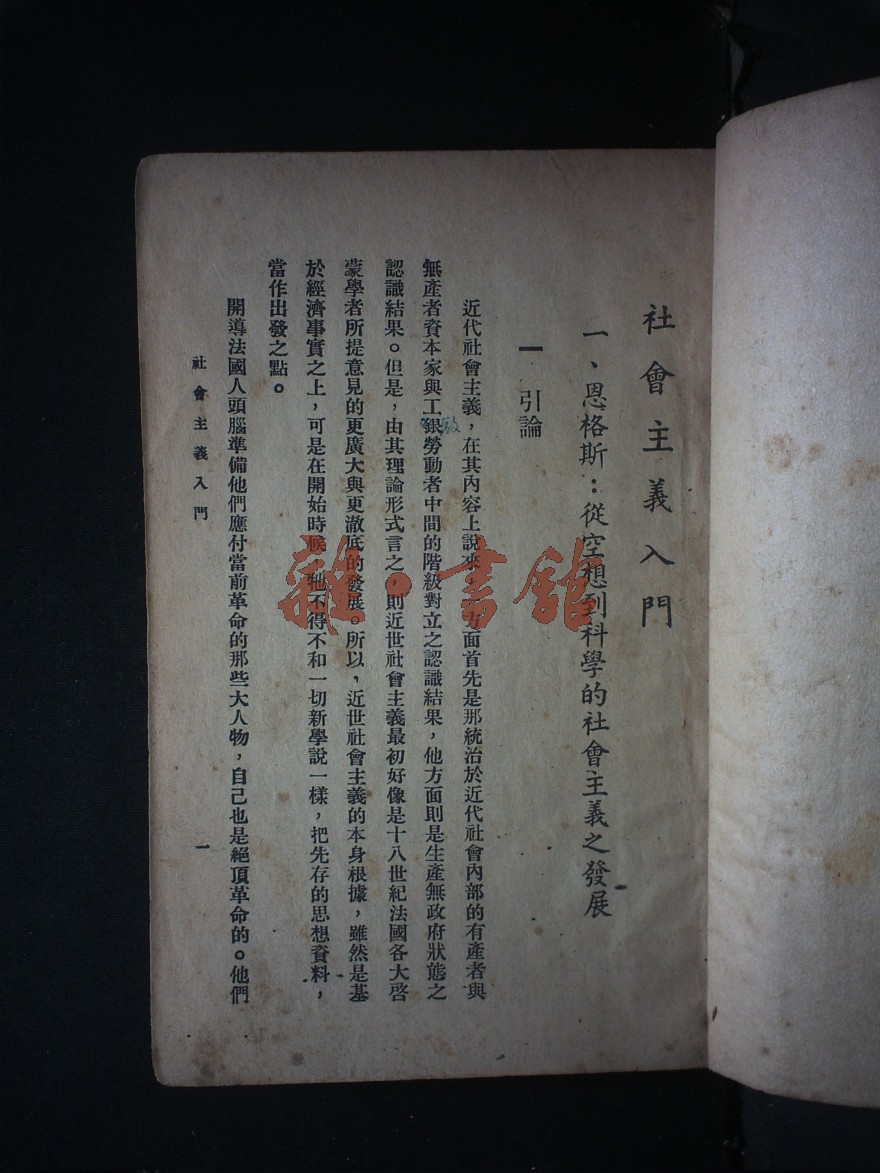 社會主義入門
一、恩格斯：從空想到科學的社會主義之發展
一 引論
近代社會主義，在其內容上說來，方面首先是那統治於近代社會內部的有產者與
無產者資本家與工銀勞動者中間的階級對立之認識結果，他方面則是生產無政府狀態之
認識結果。但是，由其理論形式言之，則近世社會主義最初好像是十八世紀法國各大啓
蒙學者所提意見的更廣大與更澈底的發展。所以，近世社會主義的本身根據，雖然是基
於經濟事實之上，可是在開始時候，牠不得不和一切新學說一樣，把先存的思想資料，
當作出發之點。
開導法國人頭腦準備他們應付當前革命的那些大人物，自己也是絕頂革命的。他們
社會主義入門
一
雜·書館